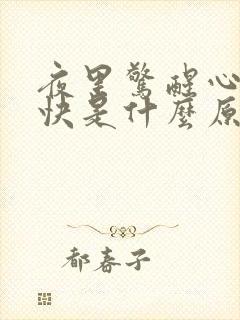 夜里驚醒心
快是什麼原
都春子